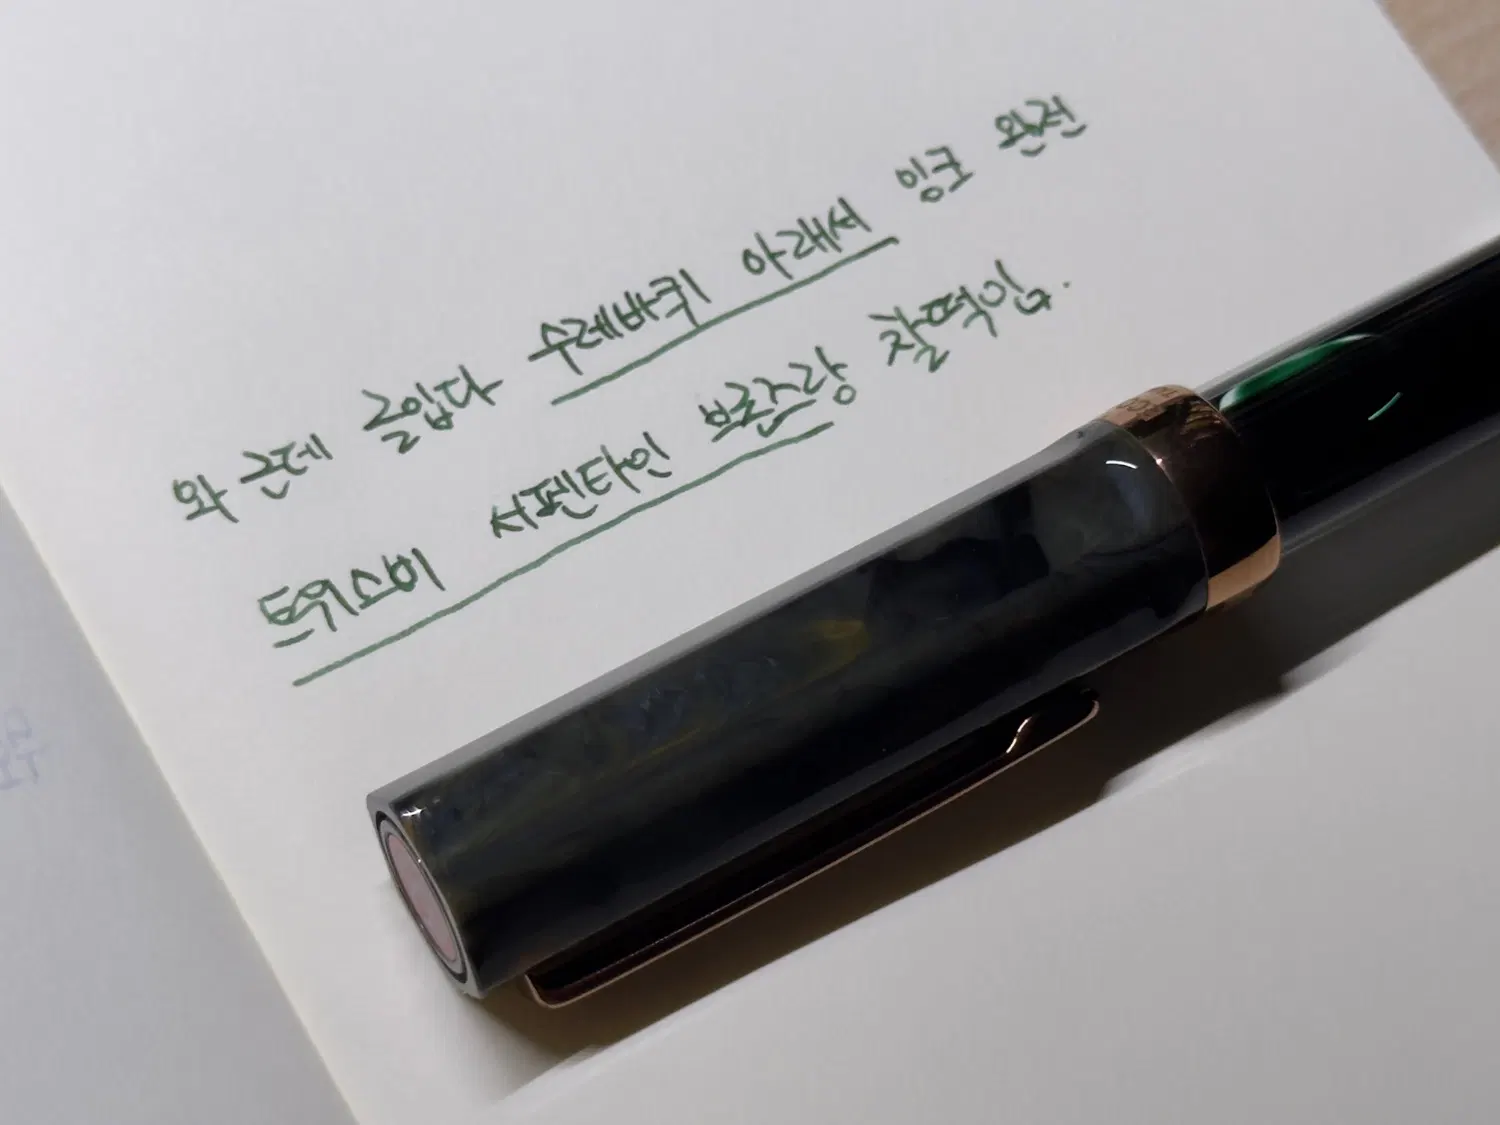 와 근데 글입다 수레바퀴 아래서 잉크 완전
트위스비 서펜타인 브론즈랑 찰떡임.